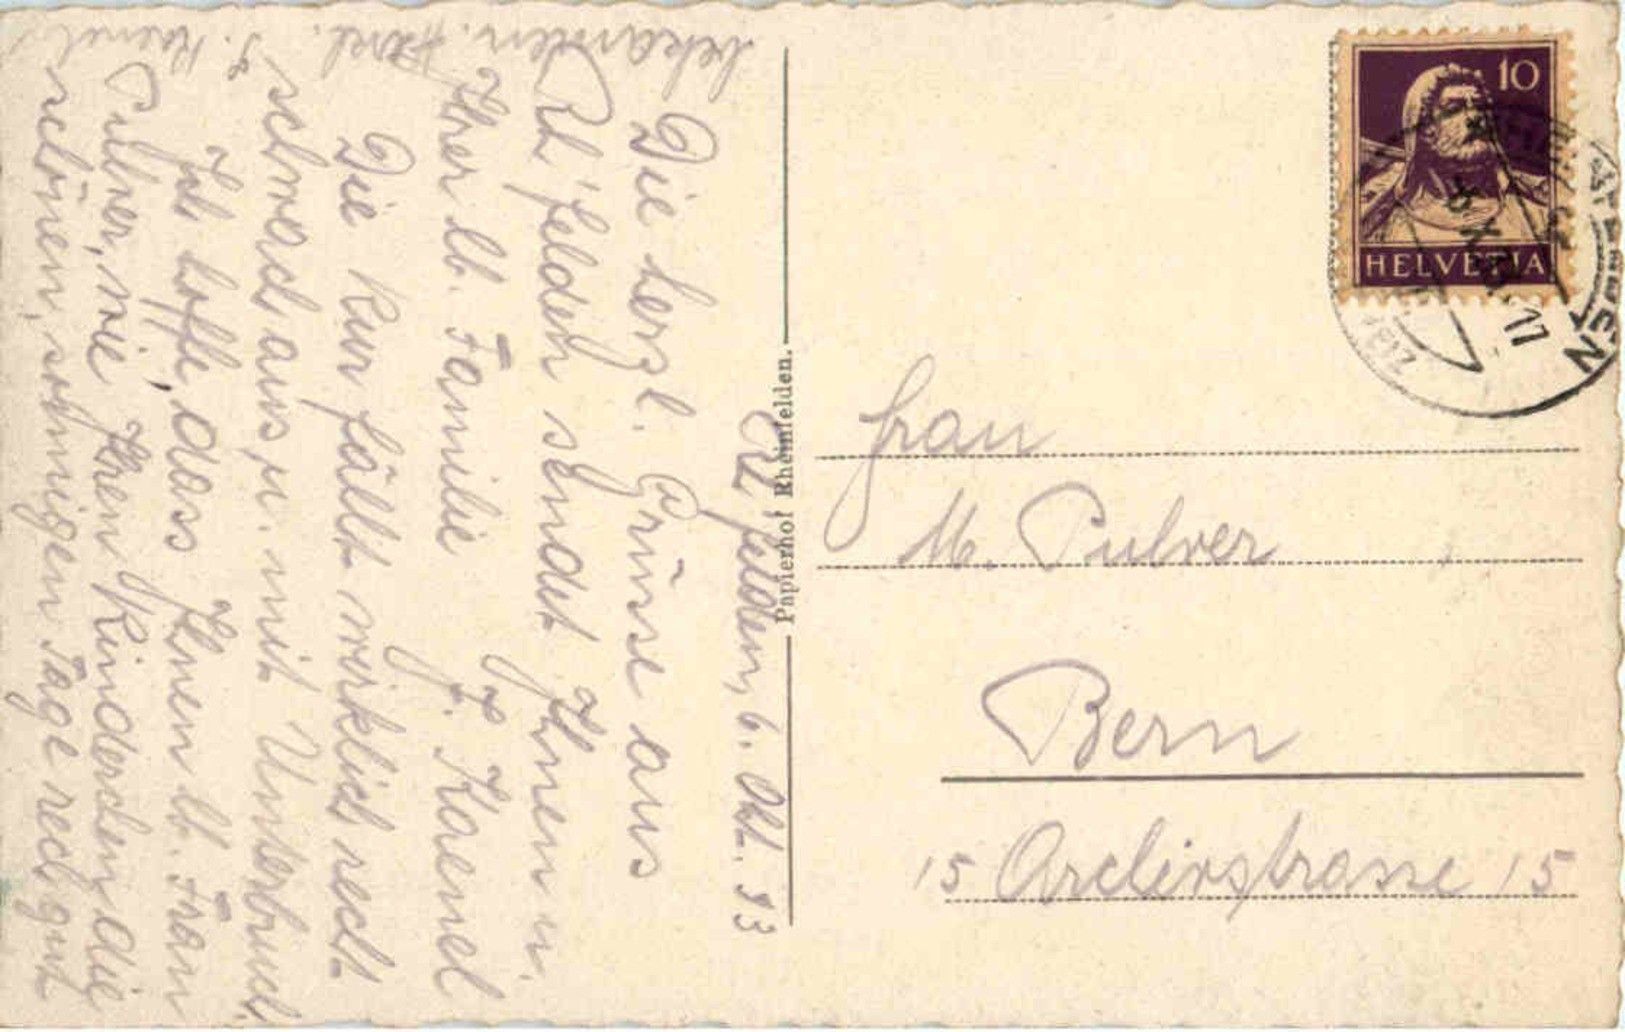 Rh'felden, 6. Okt. 33
Die herzl. Grüsse aus
Rh'felden sendet Ihnen u.
Ihrer lb. Familie J. Kaenel
Die Kur fällt wirklich recht
schwach aus, u. mit Unterbruch
Ich hoffe, dass Ihnen lb. Frau
Pulver, wie Ihren Kinderchen die
schönen, sonnigen Tage recht gut
bekamen. Herzl. J. Kaenel
Papierhof Rheinfelden.
10
HELVETIA
Frau
M. Pulver
Bern
15 Archivstrasse 15